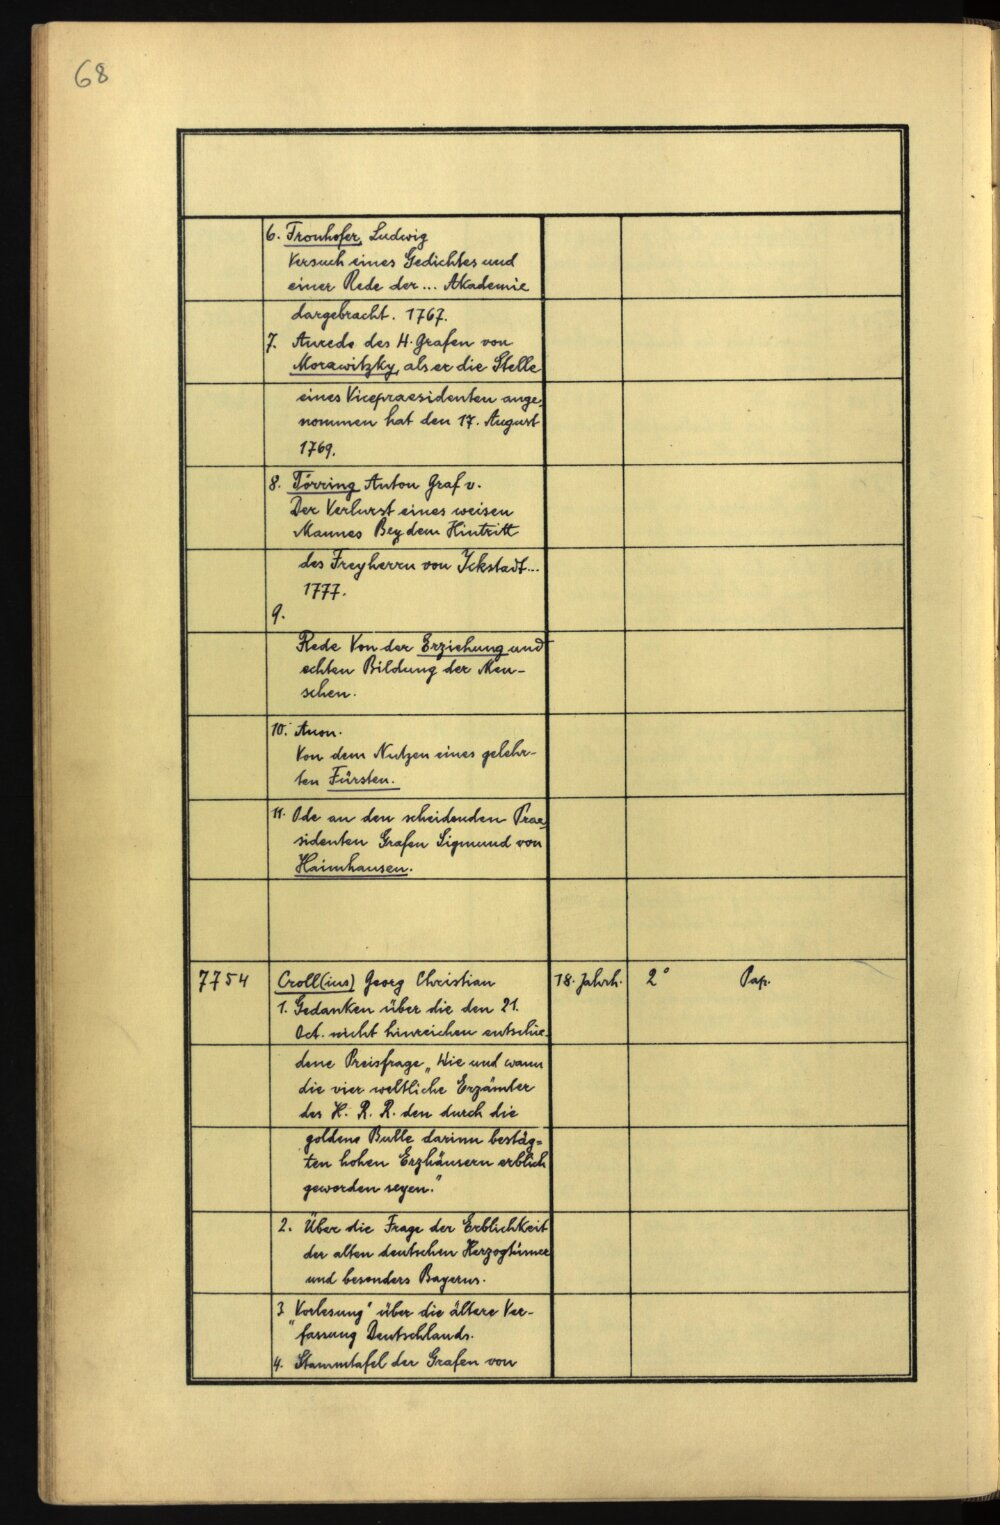 68
6. Fronhofer, Ludwig
Versuch eines Gedichtes und
einer Rede der ... Akademie
dargebracht. 1767.
7. Anrede des H. Grafen von
Morawitzky, als er die Stelle
eines Vicepraesidenten ange-
nommen hat den 17. August
1769.
8. Törring Anton Graf v.
Der Verlurst eines weisen
Mannes Bey dem Hintritt
des Freyherrn von Ickstadt...
1777.
9.
Rede Von der Erziehung und
echten Bildung der Men-
schen.
10. Anon.
Von dem Nutzen eines gelehr-
ten Fürsten.
11. Ode an den scheidenden Prae-
sidenten Grafen Sigmund von
Haimhausen.
7754 Croll(ius) Georg Christian 18. Jahrh. 2° Pap.
1. Gedanken über die den 21.
Oct. nicht hinreichen entschie-
dene Preisfrage „Wie und wann
die vier weltliche Erzämter
des H. R. R. den durch die
goldene Bulle darinn bestäg-
ten hohen Erzhäusern erblich
geworden seyen."
2. Über die Frage der Erblichkeit
der alten deutschen Herzogtümer
und besonders Bayerns.
3 „Vorlesung" über die ältere Ver-
fassung Deutschlands.
4. Stammtafel der Grafen von